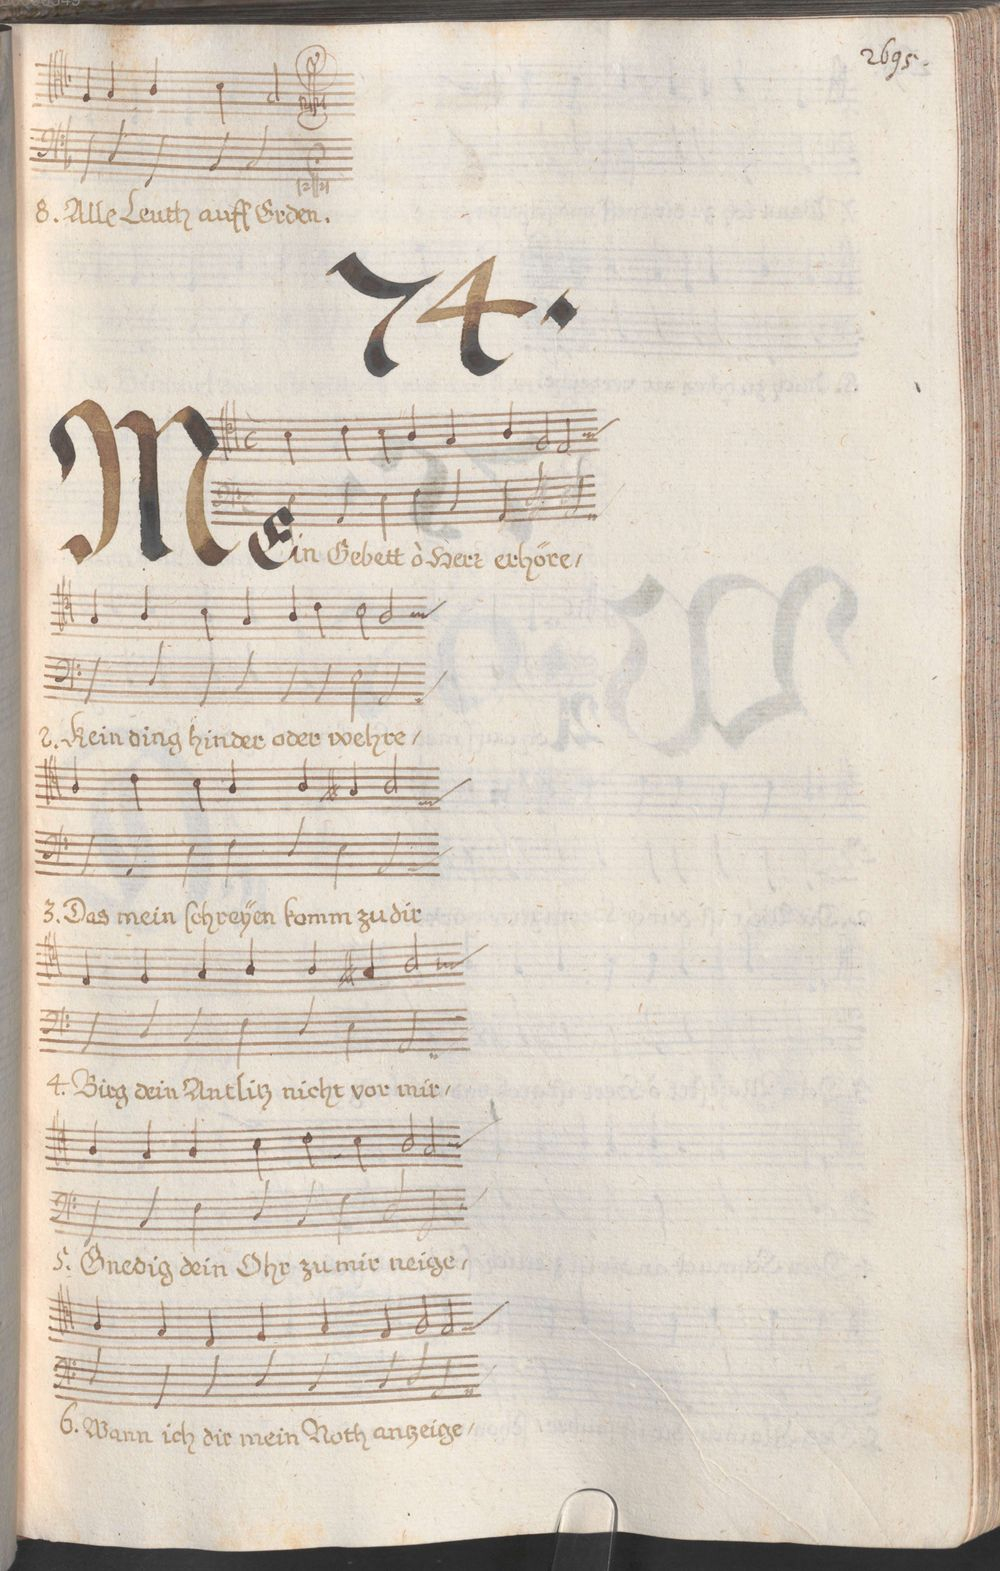 2695.
8. Alle Leuth auff Erden.
74.
MEin Gebett ò Herr erhöre,
2. Kein ding hinder oder wehre,
3. Das mein schreÿen komm zu dir
4. Birg dein Antlitz nicht vor mir,
5. Gnedig dein Ohr zu mir neige,
6. Wann ich dir mein Noth anzeige,